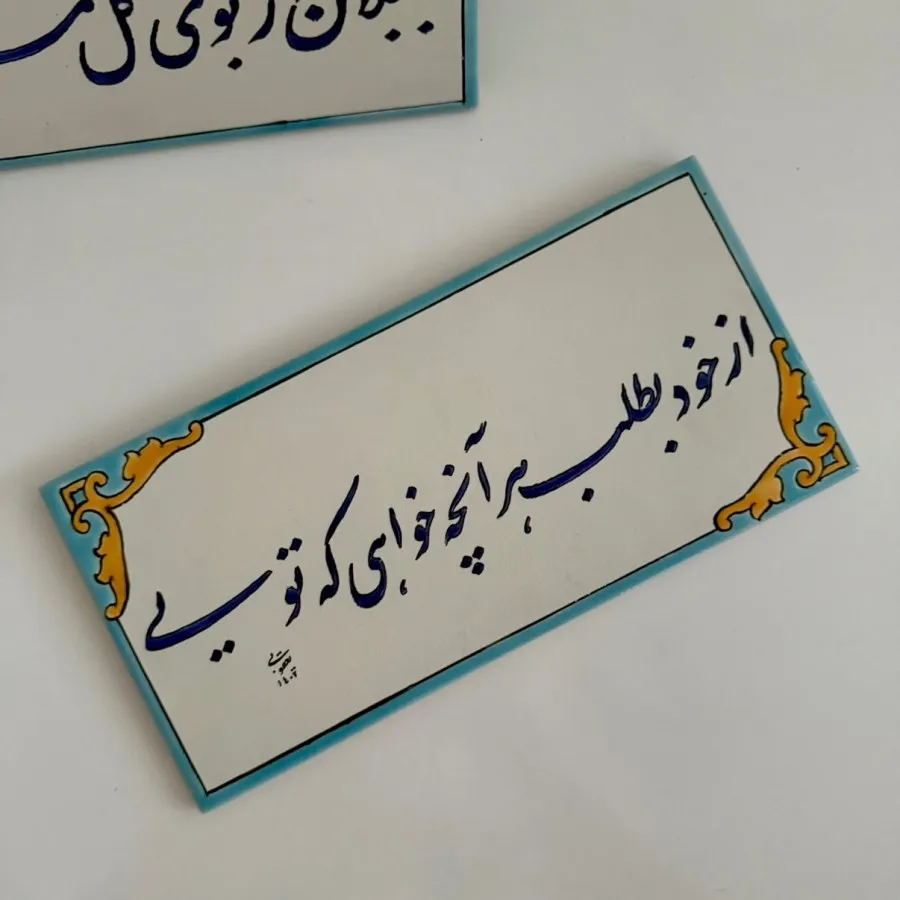 ز بوی گل
از خود بطلب هر آنچه خواهی که تویی
یعقوبی
۱۴۰۲